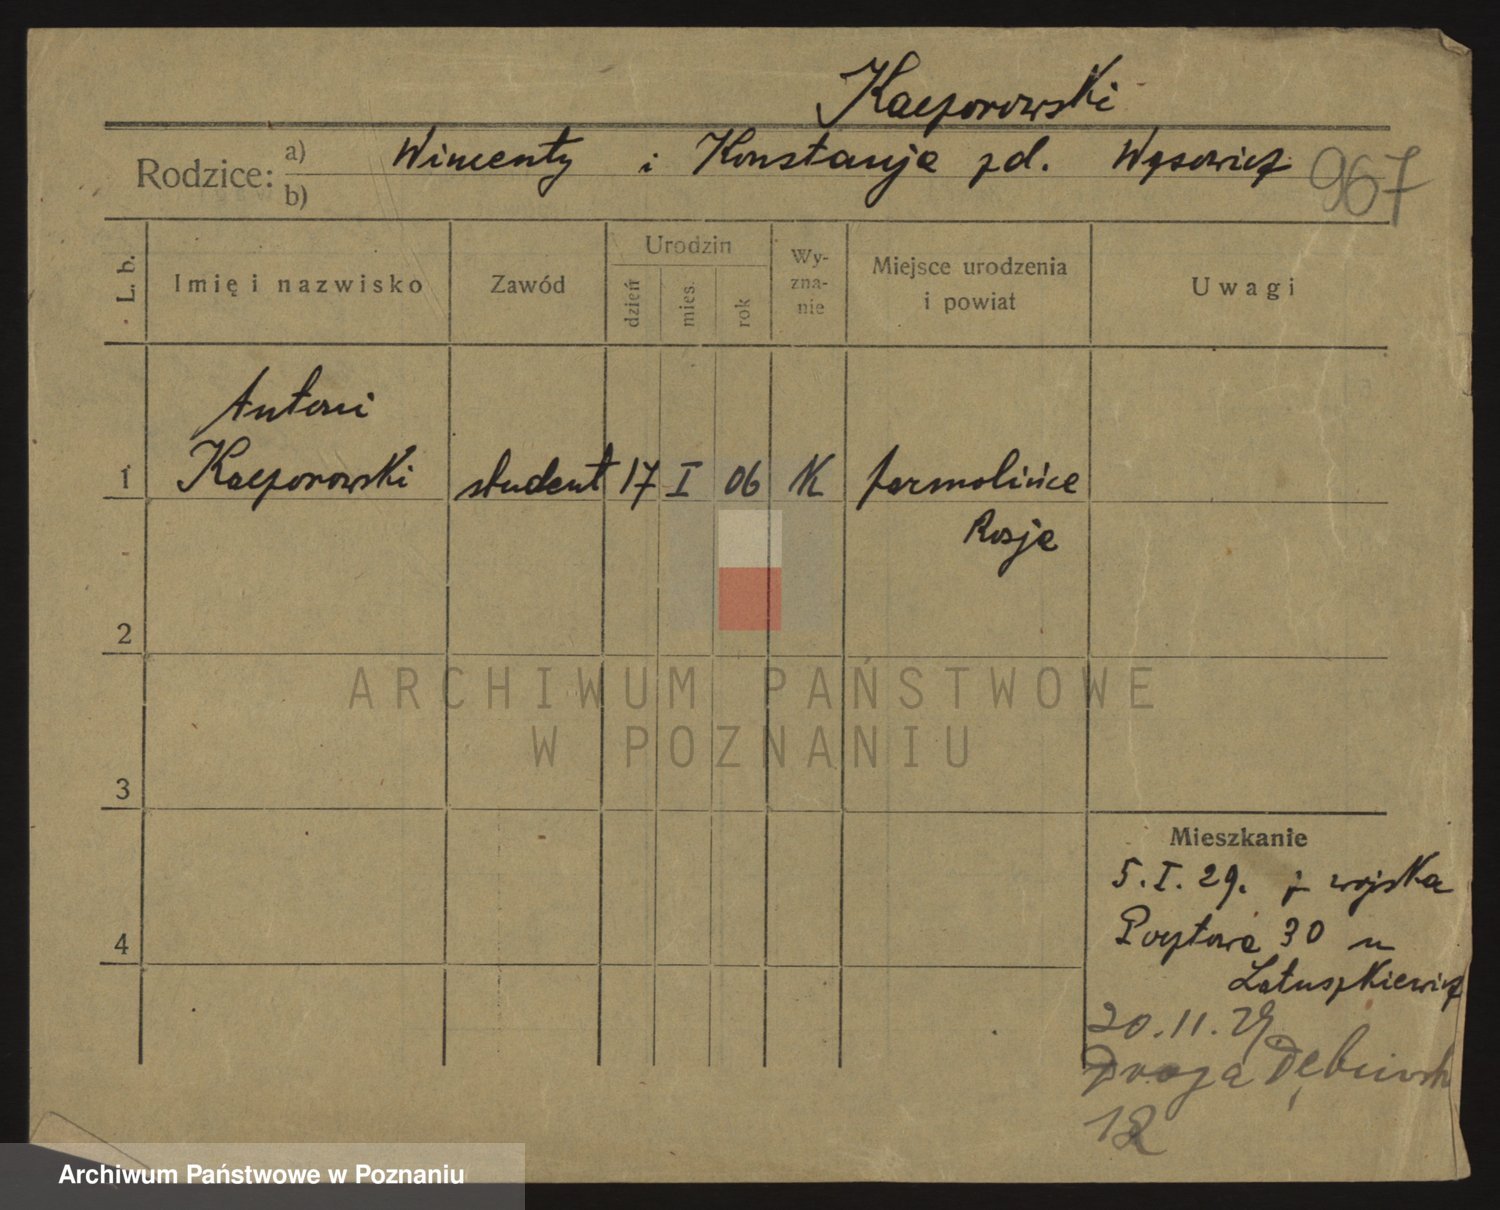 Kaczorowski
Rodzice: a) Wincenty i Konstancja zd. Wąsowicz
b)
967
L. b. Imię i nazwisko Zawód Urodzin dzień mies. rok Wy-zna-nie Miejsce urodzenia i powiat Uwagi
Antoni
1 Kaczorowski student 17 I 06 K Jarmolińce
Rosja
2
ARCHIWUM PAŃSTWOWE
W POZNANIU
3
Mieszkanie
5.I.29. z wojska
4 Pocztowa 30 u
Latuszkiewicz
20.11.29
Droga Dębińsk
12
Archiwum Państwowe w Poznaniu